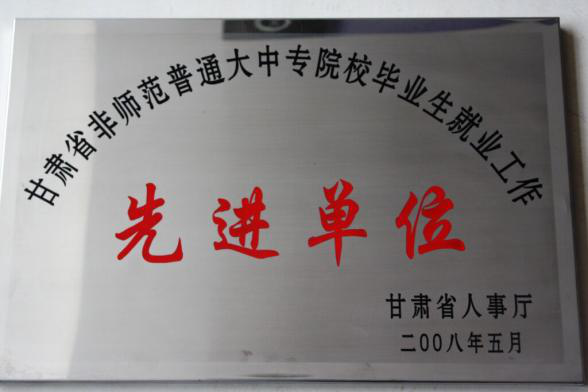 甘肃省非师范普通大中专院校毕业生就业工作
先进单位
甘肃省人事厅
二00八年五月